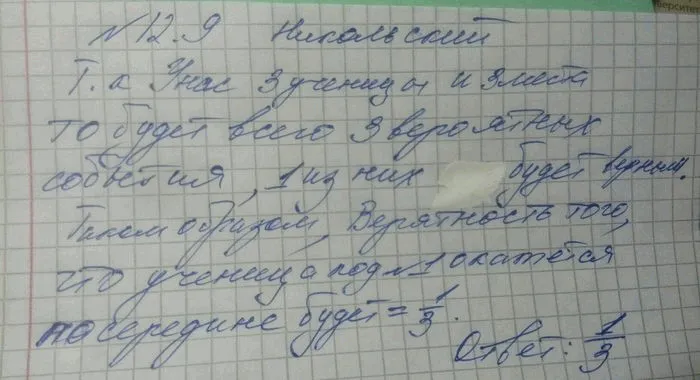 №12.9 Никольский
Т.к У нас 3 ученицы и 3 места
то будет всего 3 вероятных
события, 1 из них будет верным.
Таком образом, Верятность того,
что ученица под №1 окажется
посередине будет = 1/3.
Ответ: 1/3